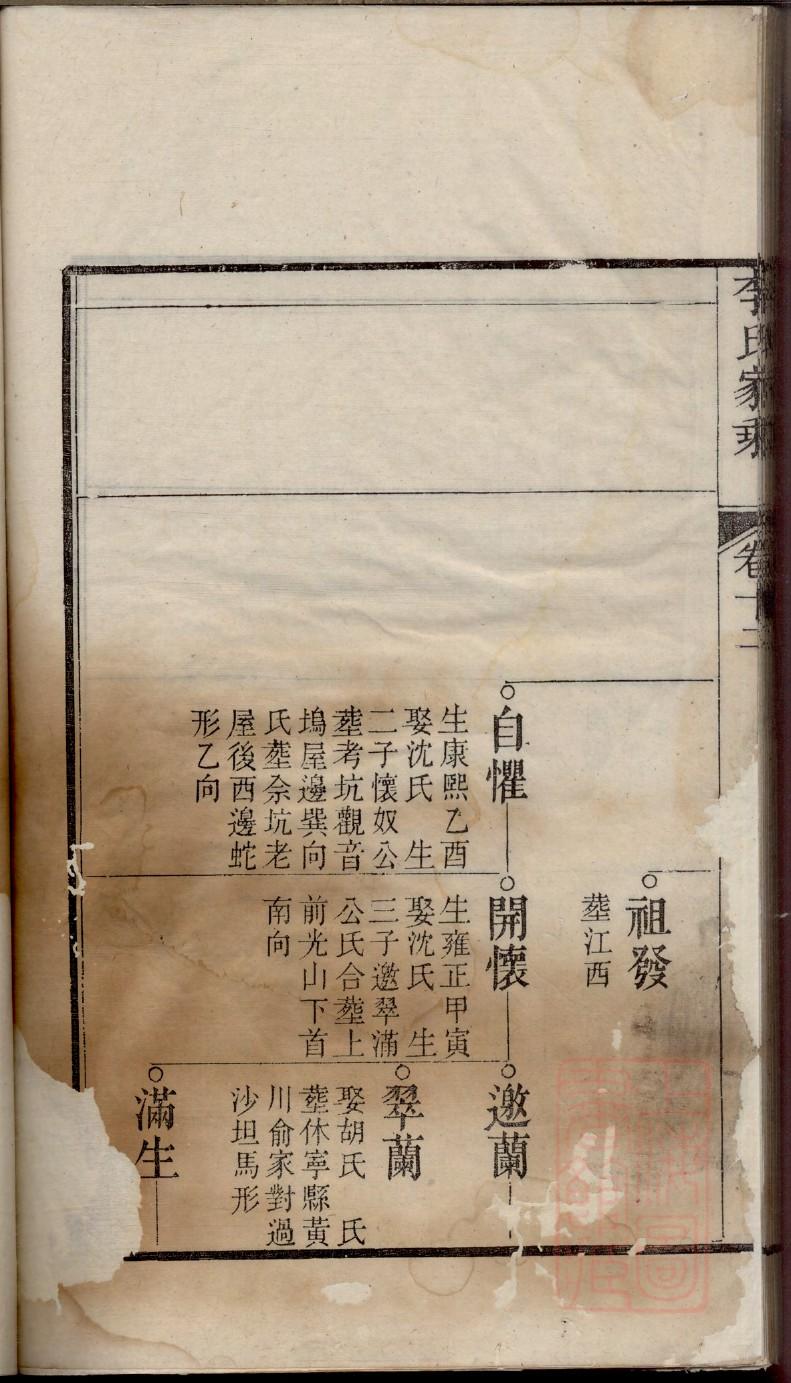 李氏家乘
卷十二
祖發
葬江西
自懼
生康熙乙酉
娶沈氏 生
二子懷奴公
葬考坑觀音
塢屋邊巽向
氏葬佘坑老
屋後西邊蛇
形乙向
開懷
生雍正甲寅
娶沈氏 生
三子邀翠滿
公氏合葬上
前光山下首
南向
邀蘭
翠蘭
娶胡氏 氏
葬休寧縣黃
川俞家對過
沙坦馬形
滿生